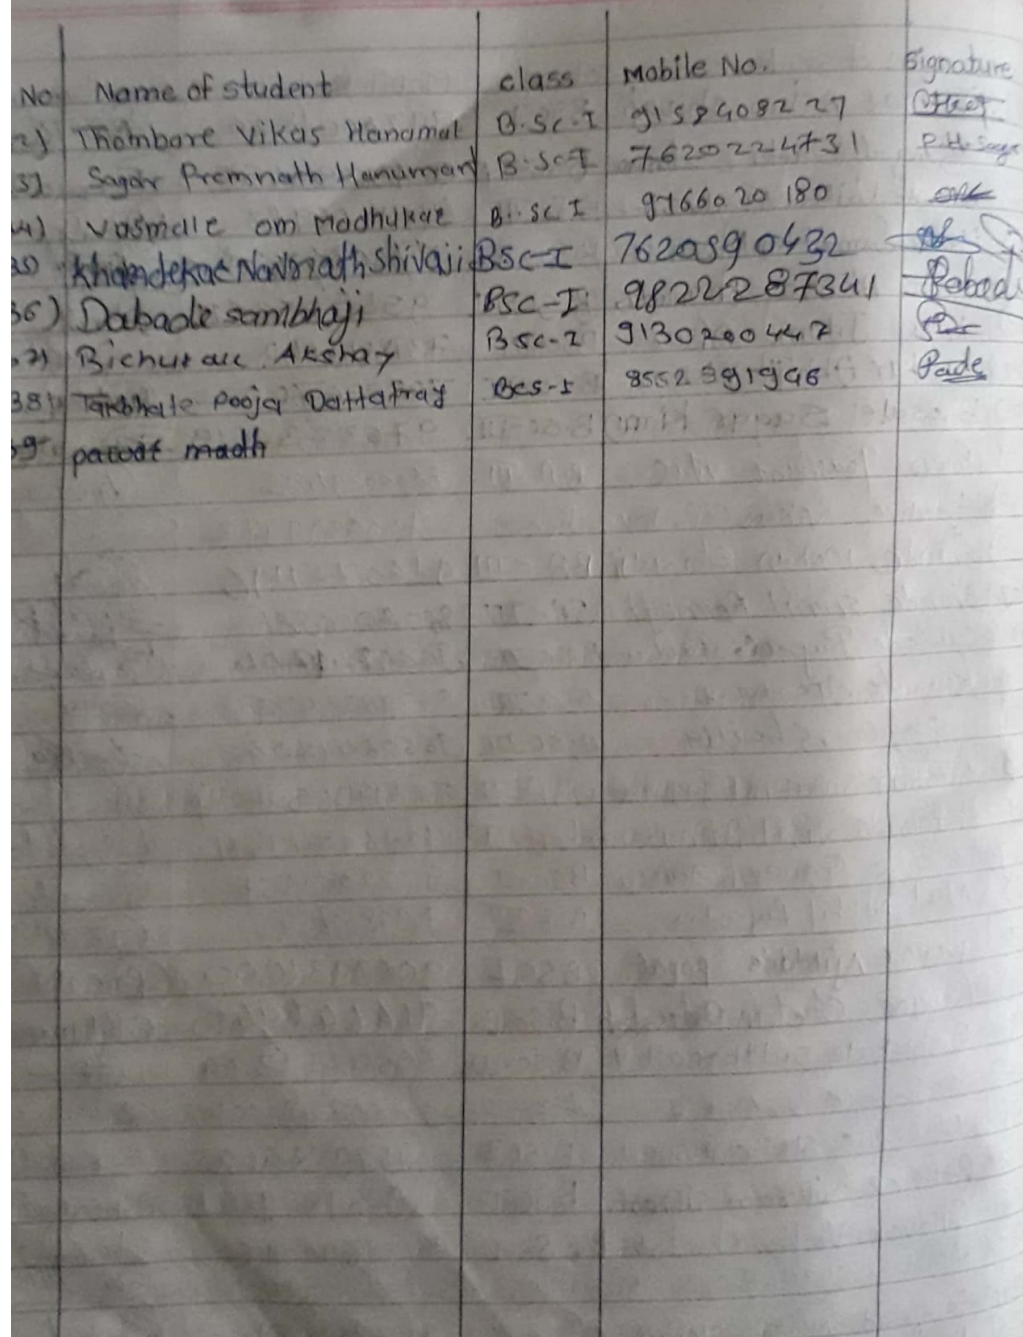 No. Name of student class Mobile No. Signature
2) Thombare Vikas Hanamat B.Sc.I 9158408227
3) Sagar Premnath Hanumant B.Sc-I 7620224731 P.H. Sagar
4) Vasmalle om Madhukar B.Sc I 9766020180
35) Khandekar Navnath Shivaji BSc-I 7620590432
36) Dabade sambhaji BSc-I 9822287341
37) Bichukale Akshay BSc-I 9130200447
38) Pooja Dattatray BCS-I 8552991946 Pade
39 madh